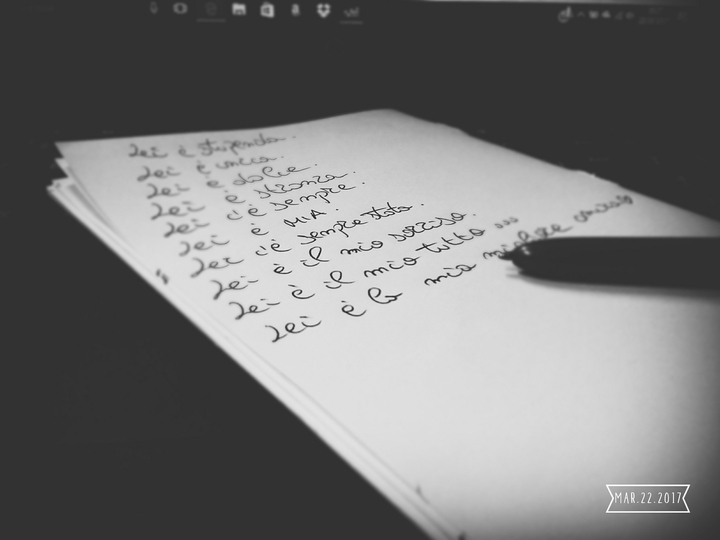 Lei è stupenda.
Lei è unica.
Lei è dolce.
Lei è strana.
Lei c'è sempre.
Lei è MIA.
Lei c'è sempre stata.
Lei è il mio sorriso.
Lei è il mio tutto...
Lei è la mia migliore amica
MAR.22.2017